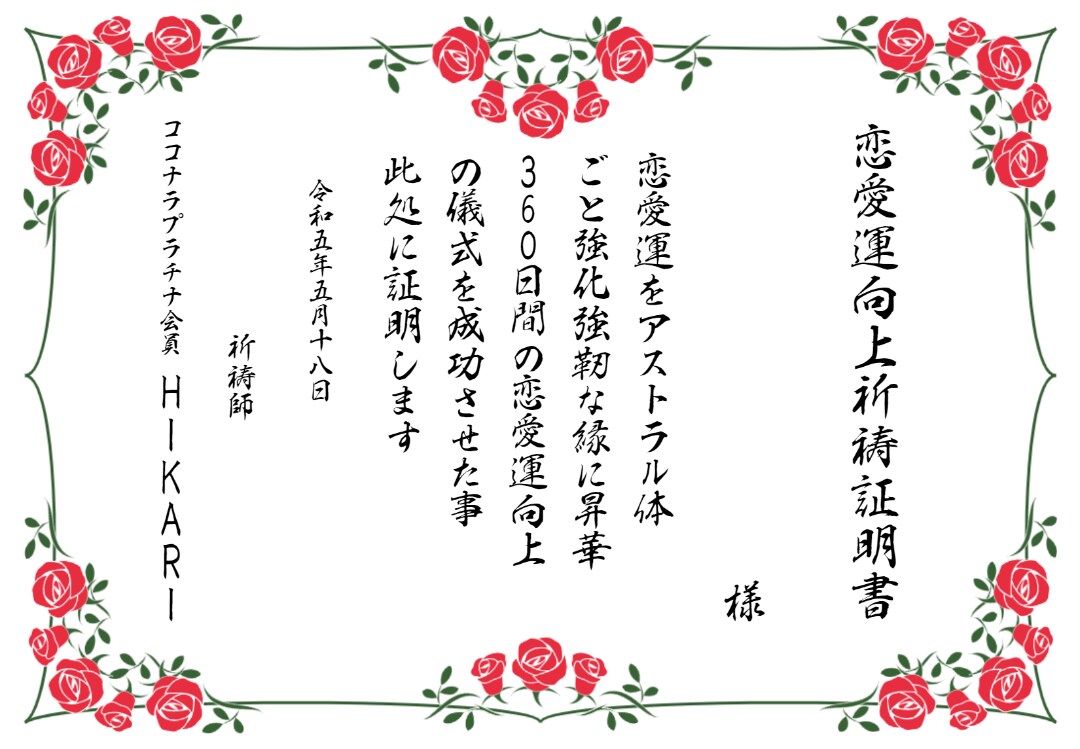 恋愛運向上祈祷証明書
様
恋愛運をアストラル体
ごと強化強靭な縁に昇華
360日間の恋愛運向上
の儀式を成功させた事
此処に証明します
令和五年五月十八日
祈祷師
ココナラプラチナ会員 HIKARI